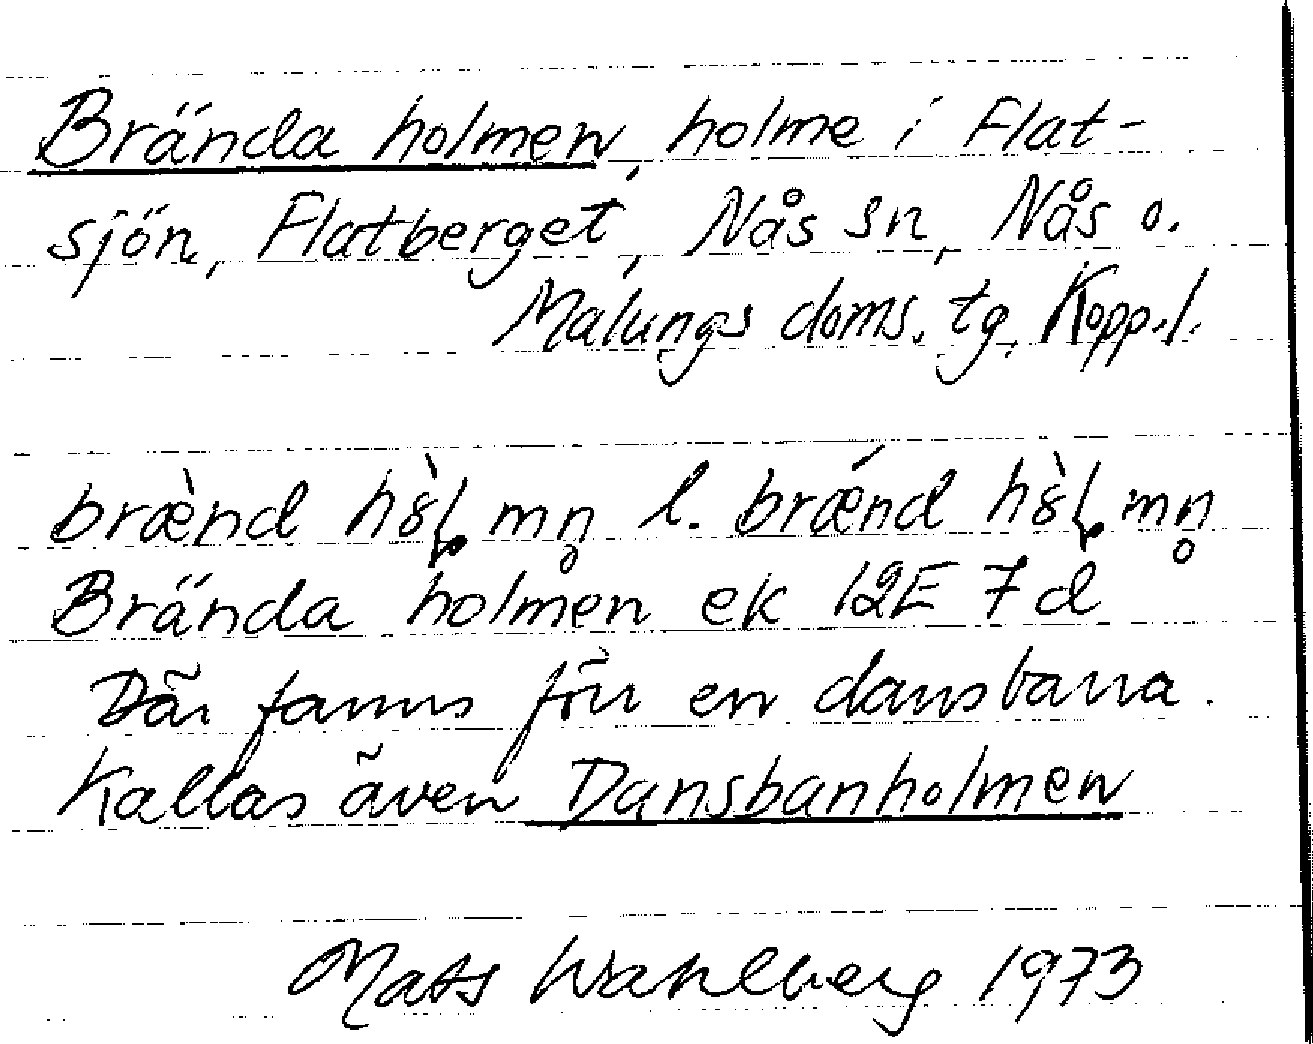 Brända holmen, holme i Flat-
sjön, Flatberget, Nås sn, Nås o.
Malungs doms. tg, Kopp.l.
brænd l. brænd
Brända holmen ek 12E 7d
Där fanns förr en dansbana.
Kallas även Dansbanholmen
Mats Wahlberg 1973